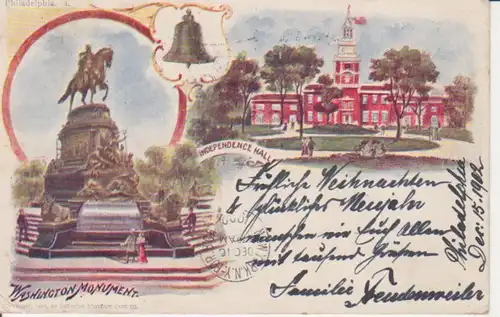 Philadelphia. 4.
INDEPENDENCE HALL
WASHINGTON MONUMENT.
Fröhliche Weihnachten
& glückliches Neujahr
wünschen wir Euch Allen
mit tausend Grüßen
Familie Freudenweiler
Philadelphia
Dec. 15, 1902
DEC 16